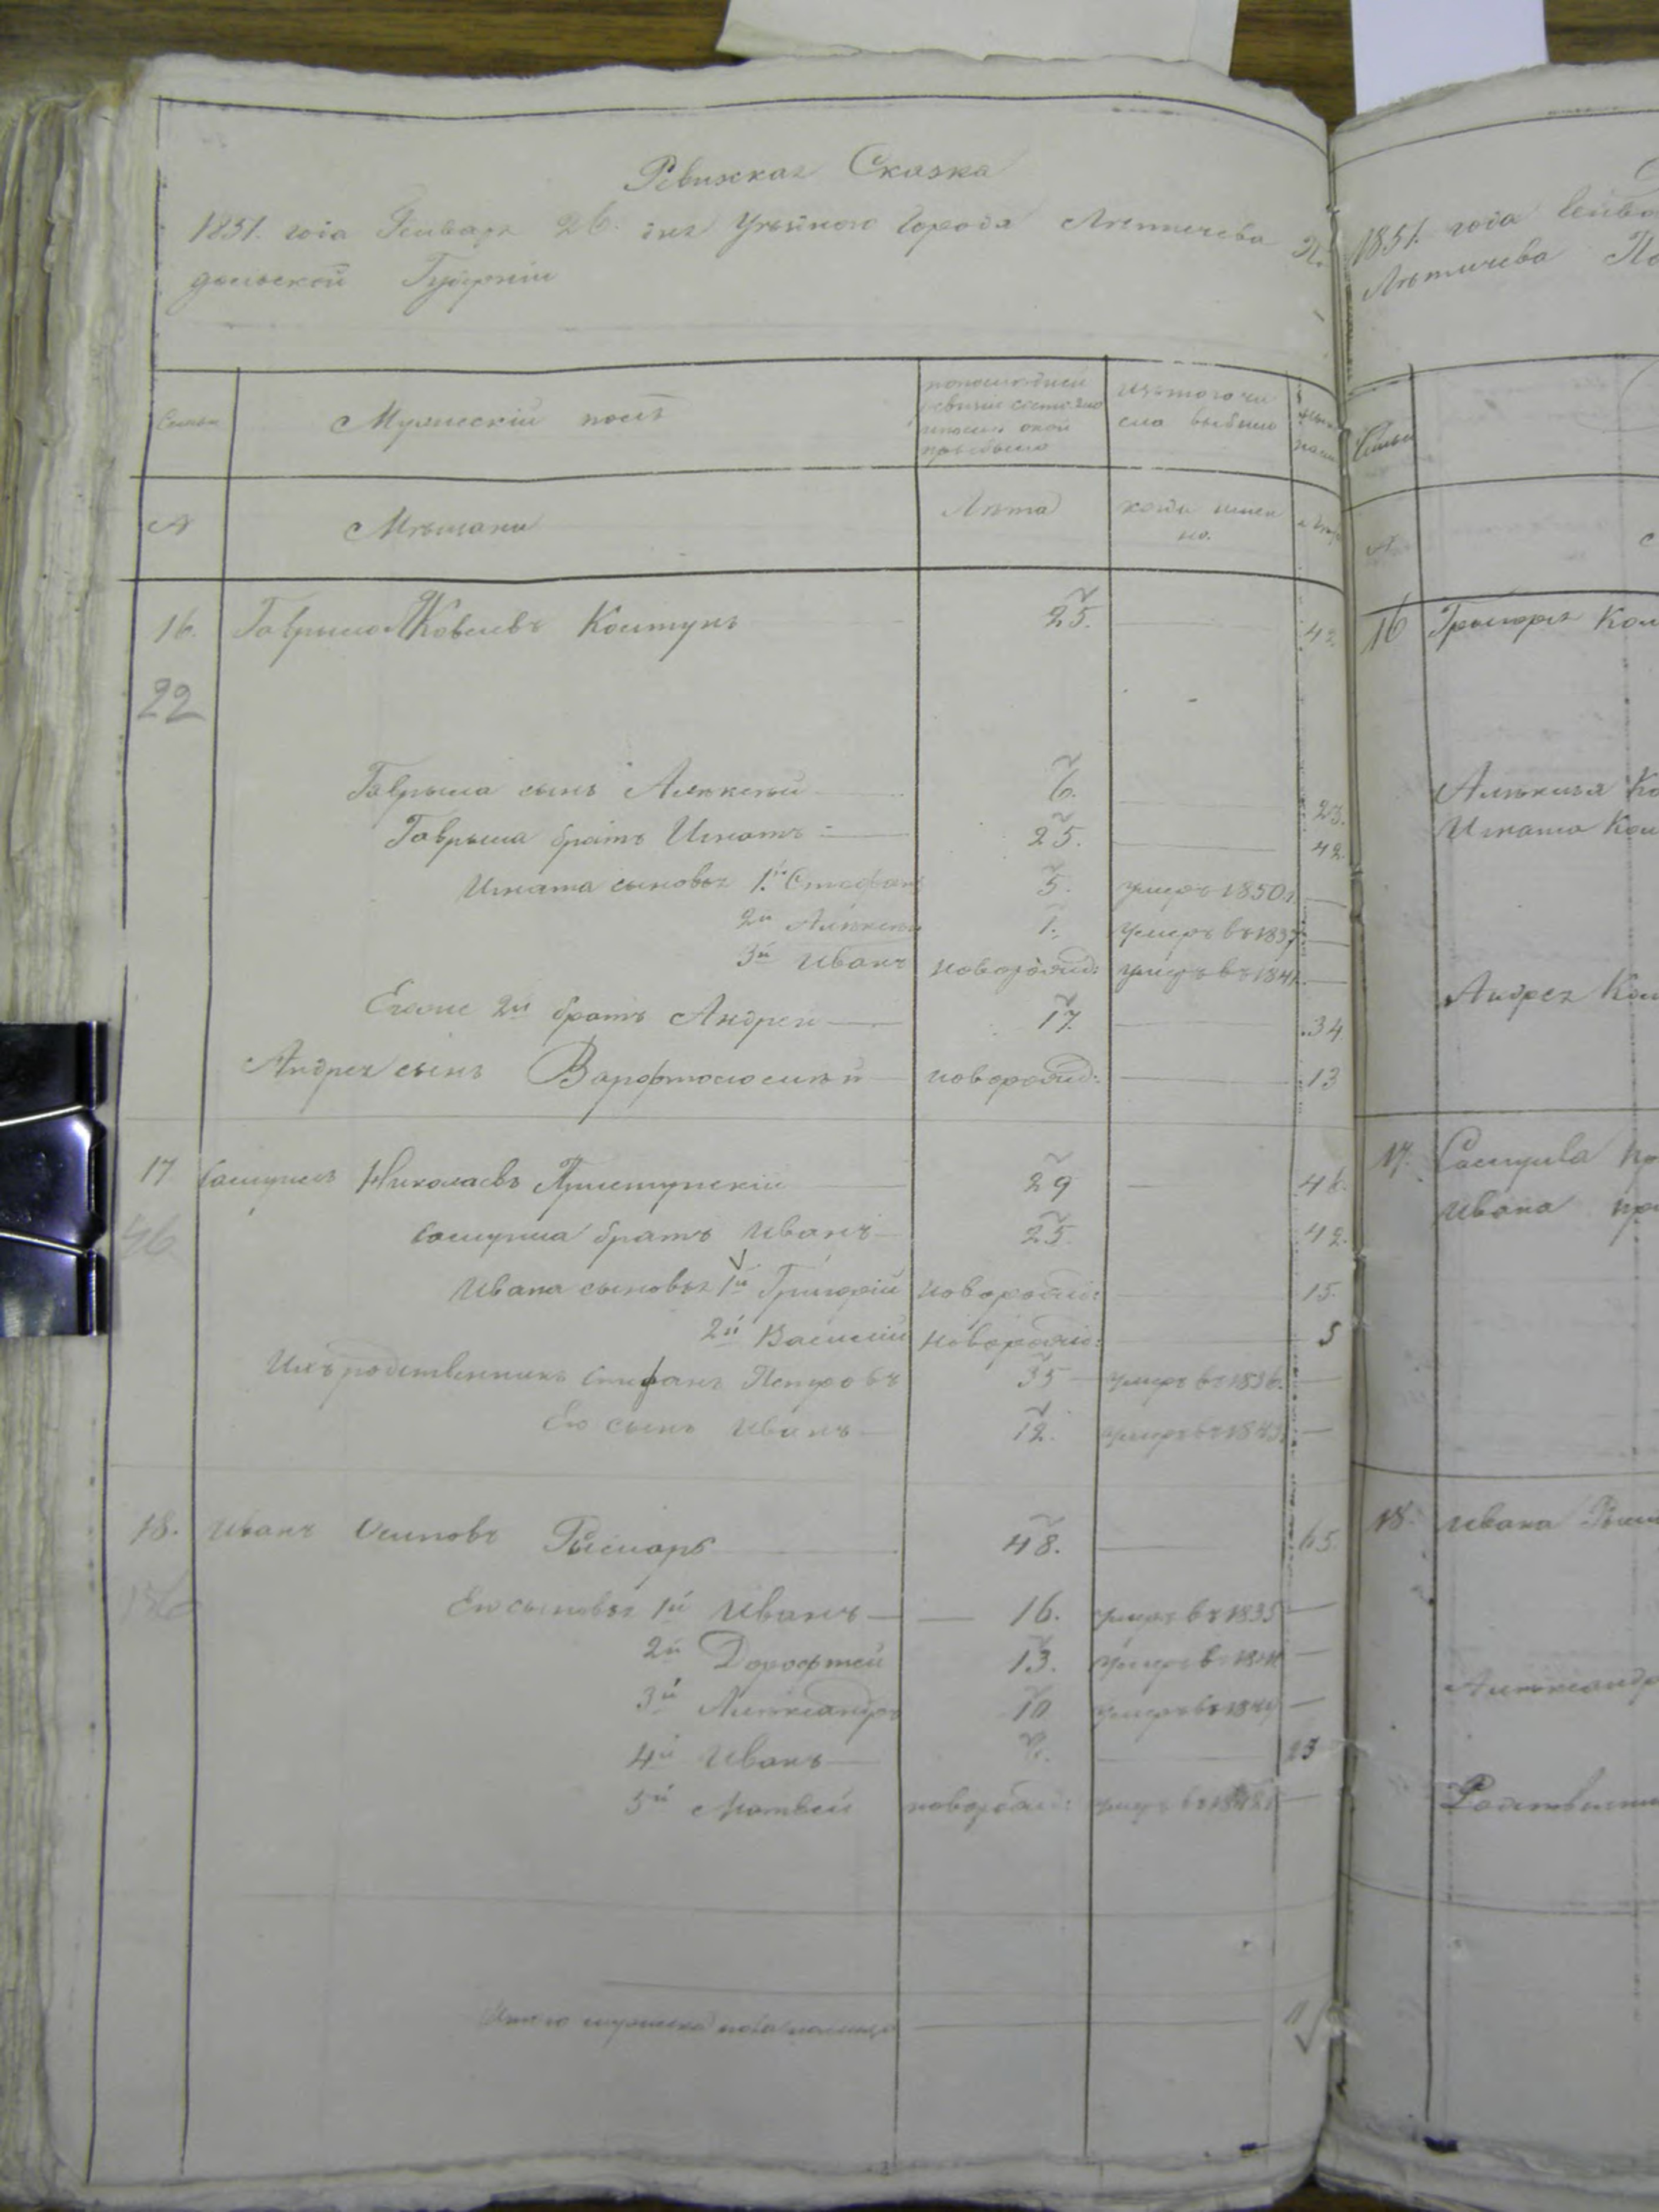 Ревижская Сказка
1851. года Генваря 26. дня Уезднаго Города Летичева По
дольской Губерніи
Семьи
Мужескій полъ
по последней
ревизіи состояло
и после оной
прибыло
изъ того чи
сла выбыло
№
Мещани
Лета
когда имен
но.
16. Гаврыло Яковлевъ Колтунъ 25. 42.
22
Гаврыла сынъ Алексей 6. 23.
Гаврыла братъ Игнатъ 25. 42.
Игната сыновья 1й Стефанъ 5. умеръ 1850.
2й Алексей 1. умеръ въ 1837
3й Иванъ новорожд: умеръ въ 1841.
Его же 2й братъ Андрей 17. 34
Андрея сынъ Варфтоломей новорожд: 13
17 Самуилъ Николаевъ Приступскій 29 46.
46
Самуила братъ Иванъ 25. 42.
Ивана сыновья 1й Григорій новорожд: 15.
2й Василий новорожд: 5
Ихъ родственникъ Стефанъ Петровъ 35 умеръ въ 1836.
Его сынъ Иванъ 12. умеръ въ 1843.
18. Иванъ Осиповъ 48. 65.
Его сыновья 1й Иванъ 16. умеръ въ 1835
2й Дорофтей 13. умеръ въ
3й Александръ 10 умеръ въ
4й Иванъ 23
5й Матвей новорожд: умеръ въ
Итого мужеска пола налицо 11
1851. года Генва
Летичева По
Семьи
№
16 Григорья Кол
Алексея Ко
Игната Кол
Андрея Кол
17. Самуила Пр
Ивана при
18. Ивана
Александр